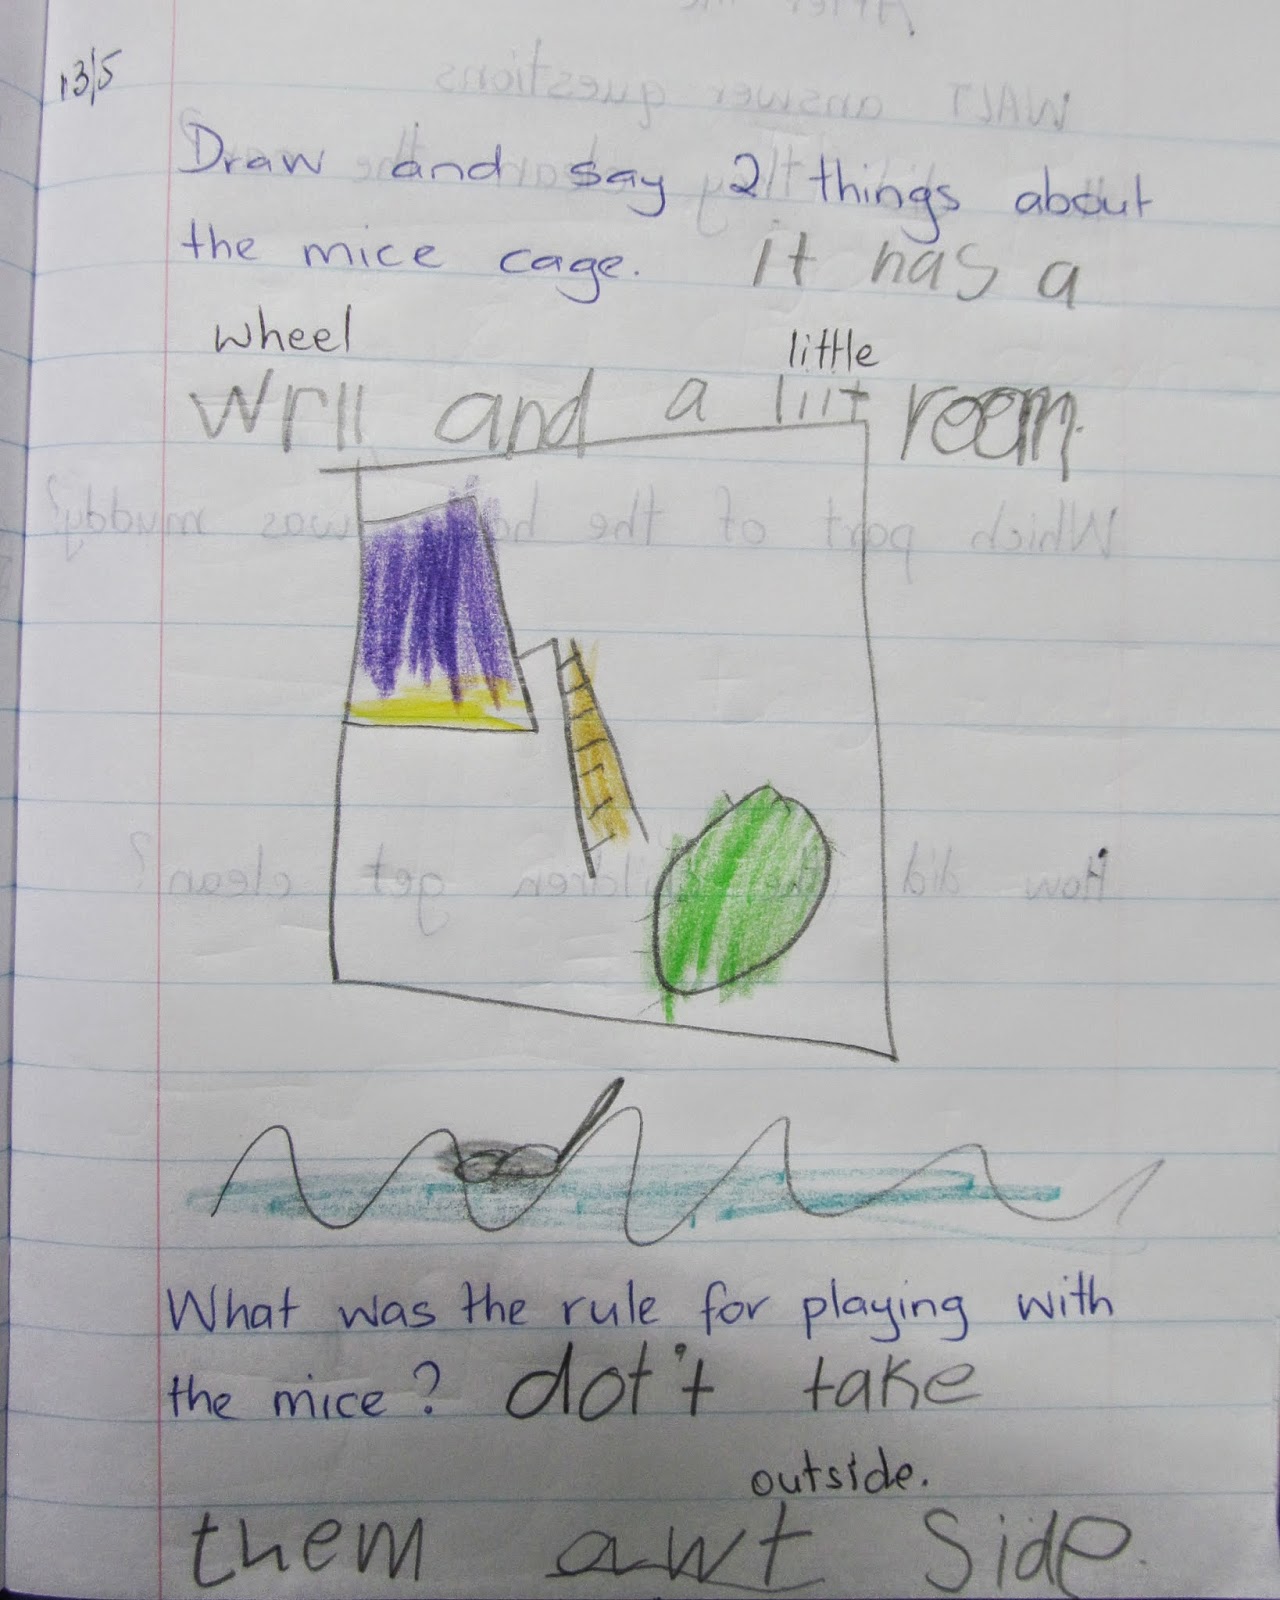 13/5
Draw and say 2 things about
the mice cage. it has a
wheel little
wrll and a liit room.
What was the rule for playing with
the mice? dot't take
outside.
them awt side.